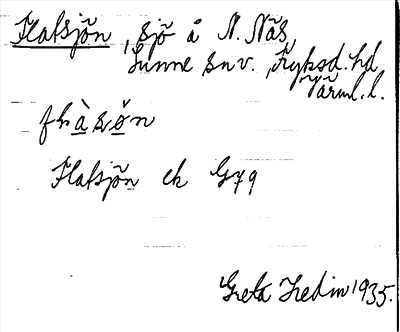 Flatsjön, sjö å N. Näs,
Sunne snv. Fryksd. hd
Värml. l.
flàsøn
Flatsjön ek G79
Greta Hedin 1935.